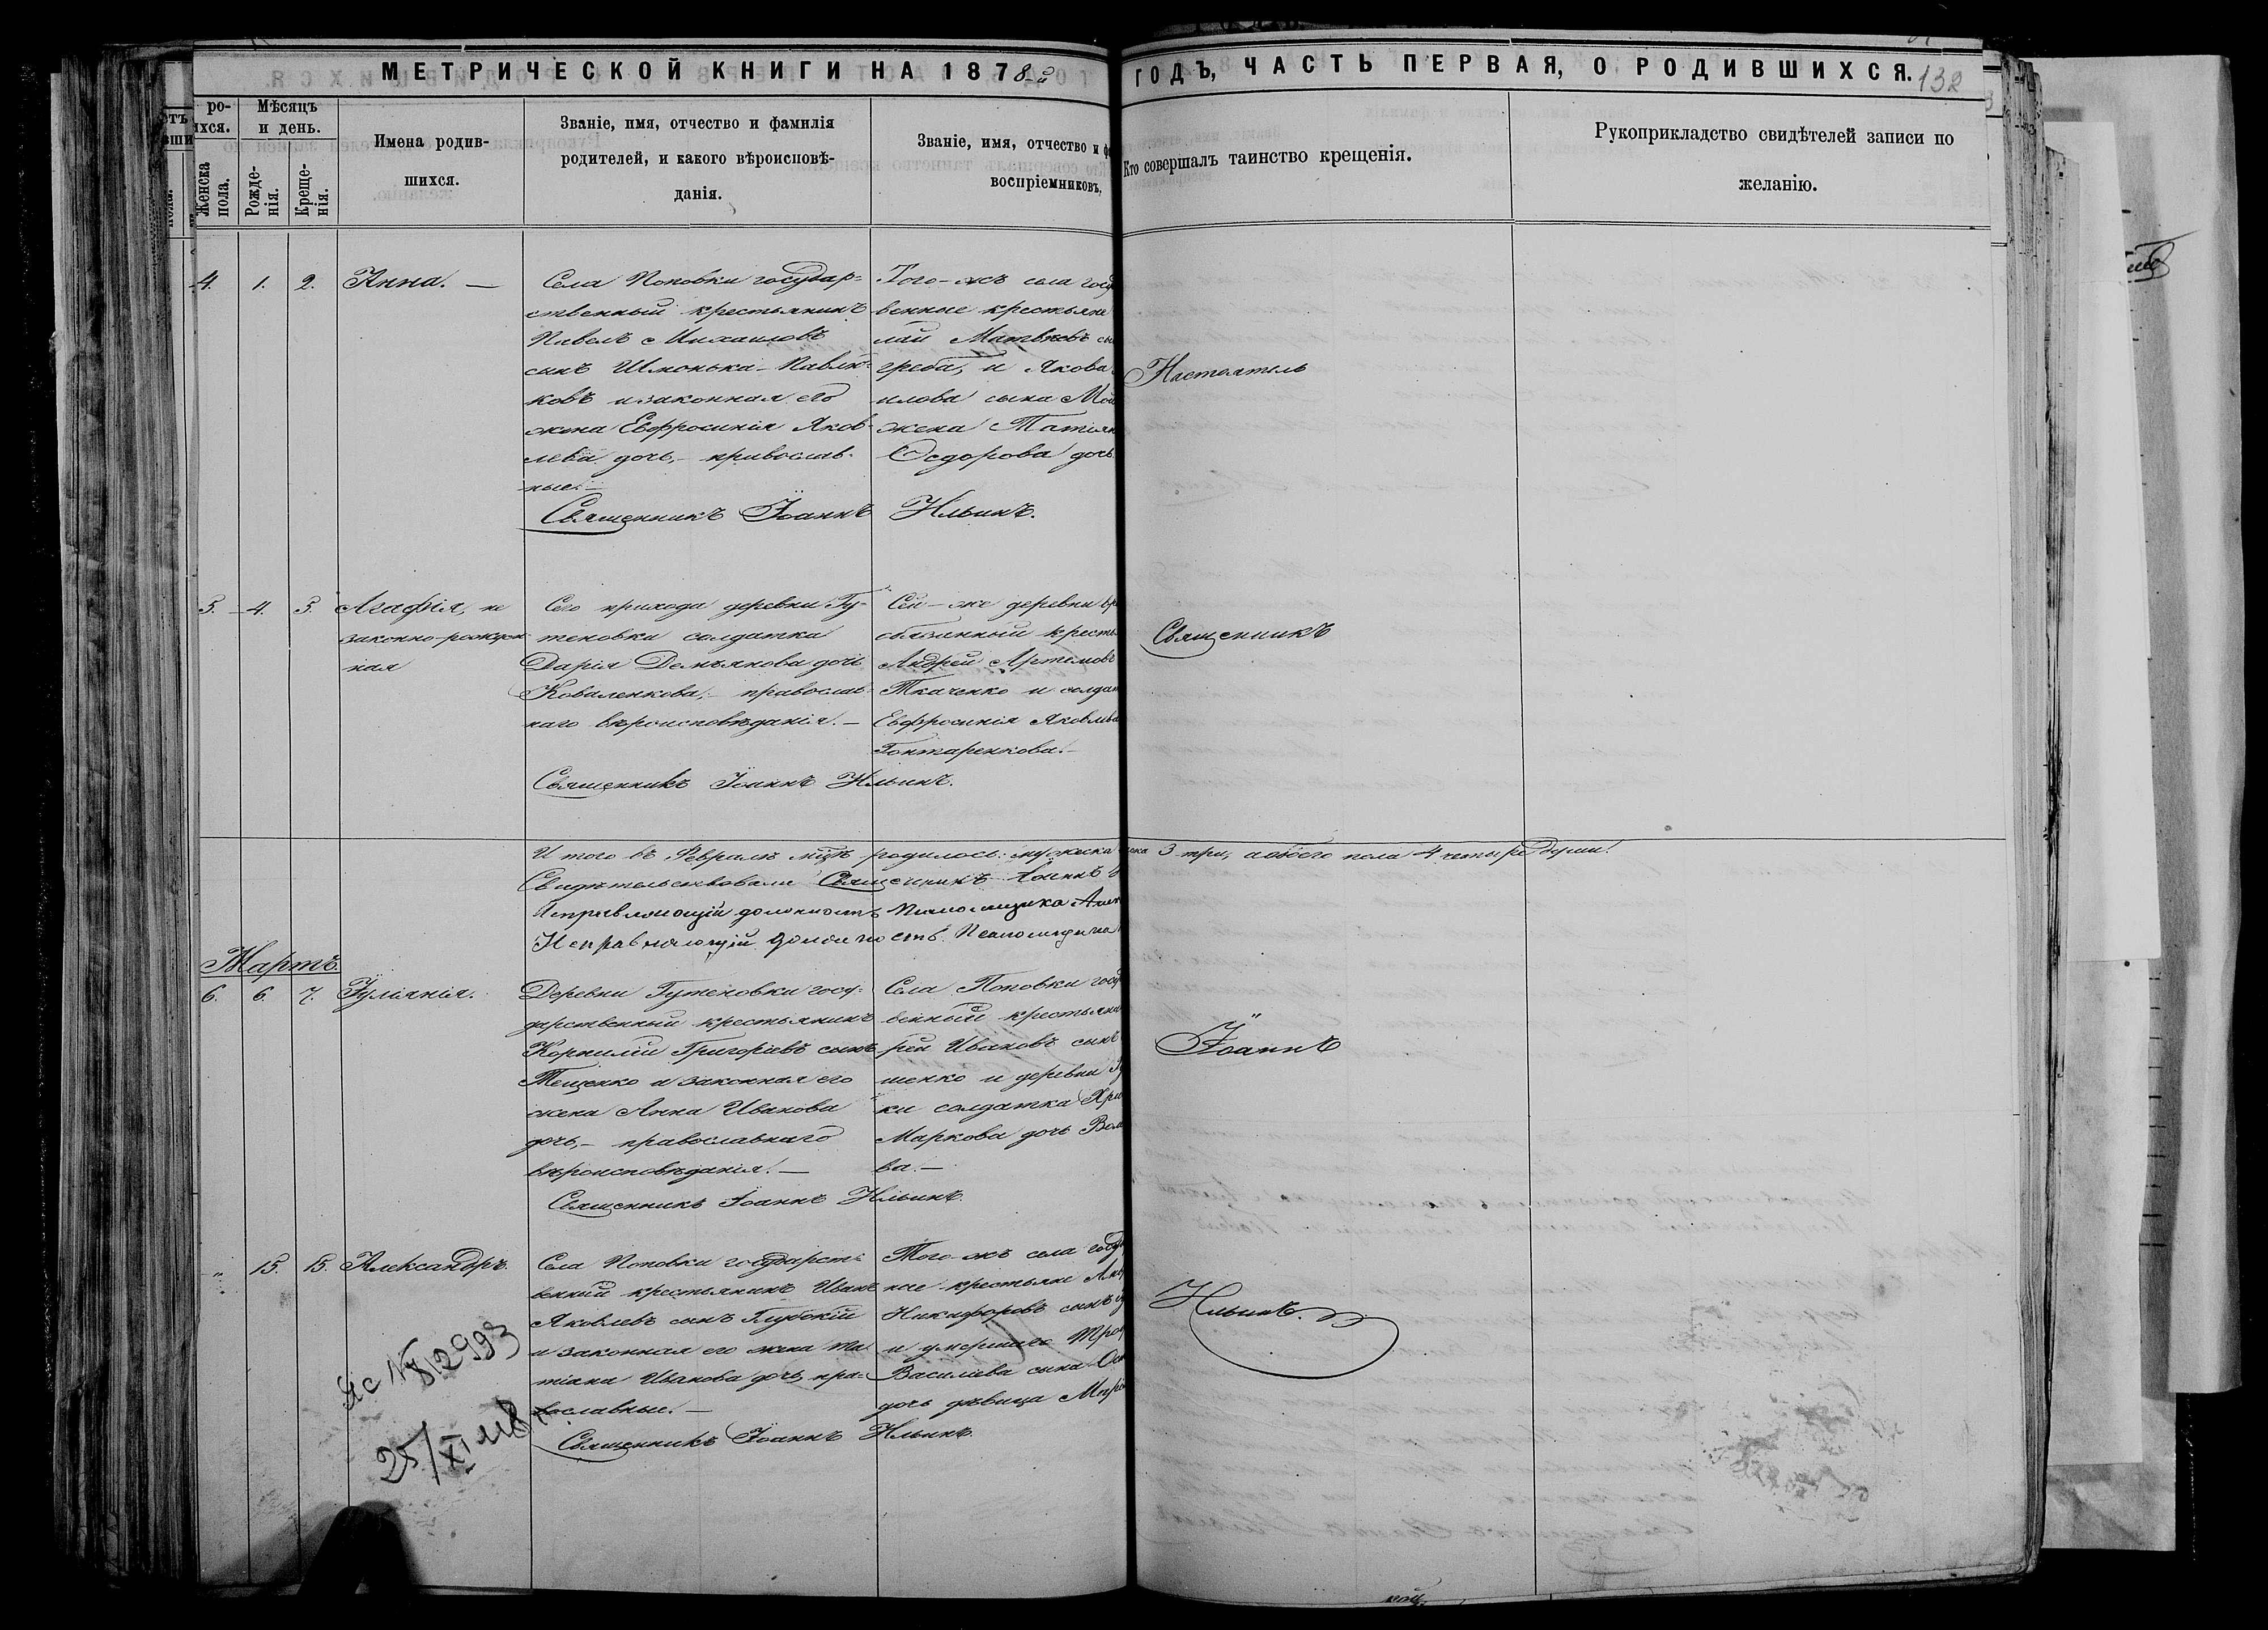 МЕТРИЧЕСКОЙ КНИГИ НА 1878-й ГОДЪ, ЧАСТЬ ПЕРВАЯ, О РОДИВШИХСЯ.
132
ро-
Мѣсяцъ
и день.
Женска
пола.
Рожде-
нія.
Креще-
нія.
Имена родив-
шихся.
Званіе, имя, отчество и фамилія
родителей, и какого вѣроисповѣ-
данія.
Званіе, имя, отчество и
воспріемниковъ.
Кто совершалъ таинство крещенія.
Рукоприкладство свидѣтелей записи по
желанію.
4. 1. 2. Анна. —
Села Поповки государ-
ственный крестьянинъ
Павелъ Михаиловъ
сынъ Шмонька-Павлю-
ковъ и законная его
жена Евфросинія Яков-
лева дочь, православ-
ные. —
Того-жъ села
венные крестьяне
лій Матвѣевъ
греба, и Якова
илова сына
жена Татіян
Ѳедорова дочь
Священникъ Іоаннъ Ильинъ.
5. 4. 5. Агафія, не
законно-рожден
ная
Сего прихода деревни Гу-
теновки солдатка
Дарія Демьянова дочь
Коваленкова, православ-
наго вѣроисповѣданія. —
Сей-же деревни
обязанный кресть
Андрей Артемовъ
Ткаченко и солдат
Евфросинія Яковлева
Гонтаренкова. —
Священникъ Іоаннъ Ильинъ.
И того въ Февралѣ м-цѣ родилось: мужска 3 три, а обоего пола 4 четыре души.
Свидѣтельствовали Священникъ Іоаннъ
Исправляющій должность Псаломщика
Исправляющій должность Псаломщика
Мартъ.
6. 6. 7. Іуліянія.
Деревни Гутеновки госу-
дарственный крестьянинъ
Корнилій Григоріевъ сынъ
Тещенко и законная его
жена Анна Иванова
дочь, — православнаго
вѣроисповѣданія. —
Села Поповки госуд
венный крестьянин
рей Ивановъ сынъ
шенко и деревни
ки солдатка
Маркова дочь
ва. —
Священникъ Іоаннъ Ильинъ.
" 15. 15. Александръ.
Села Поповки государст-
венный крестьянинъ Иванъ
Яковлевъ сынъ Глубокій
и законная его жена Та-
тіана Иванова дочь, пра-
вославные. —
Того-жъ села
ные крестьяне
Никифоровъ сынъ
и умершаго
Василіева сына
дочь дѣвица
Священникъ Іоаннъ Ильинъ.
25/XI
Настоятель
Священникъ
Іоаннъ
Ильинъ.